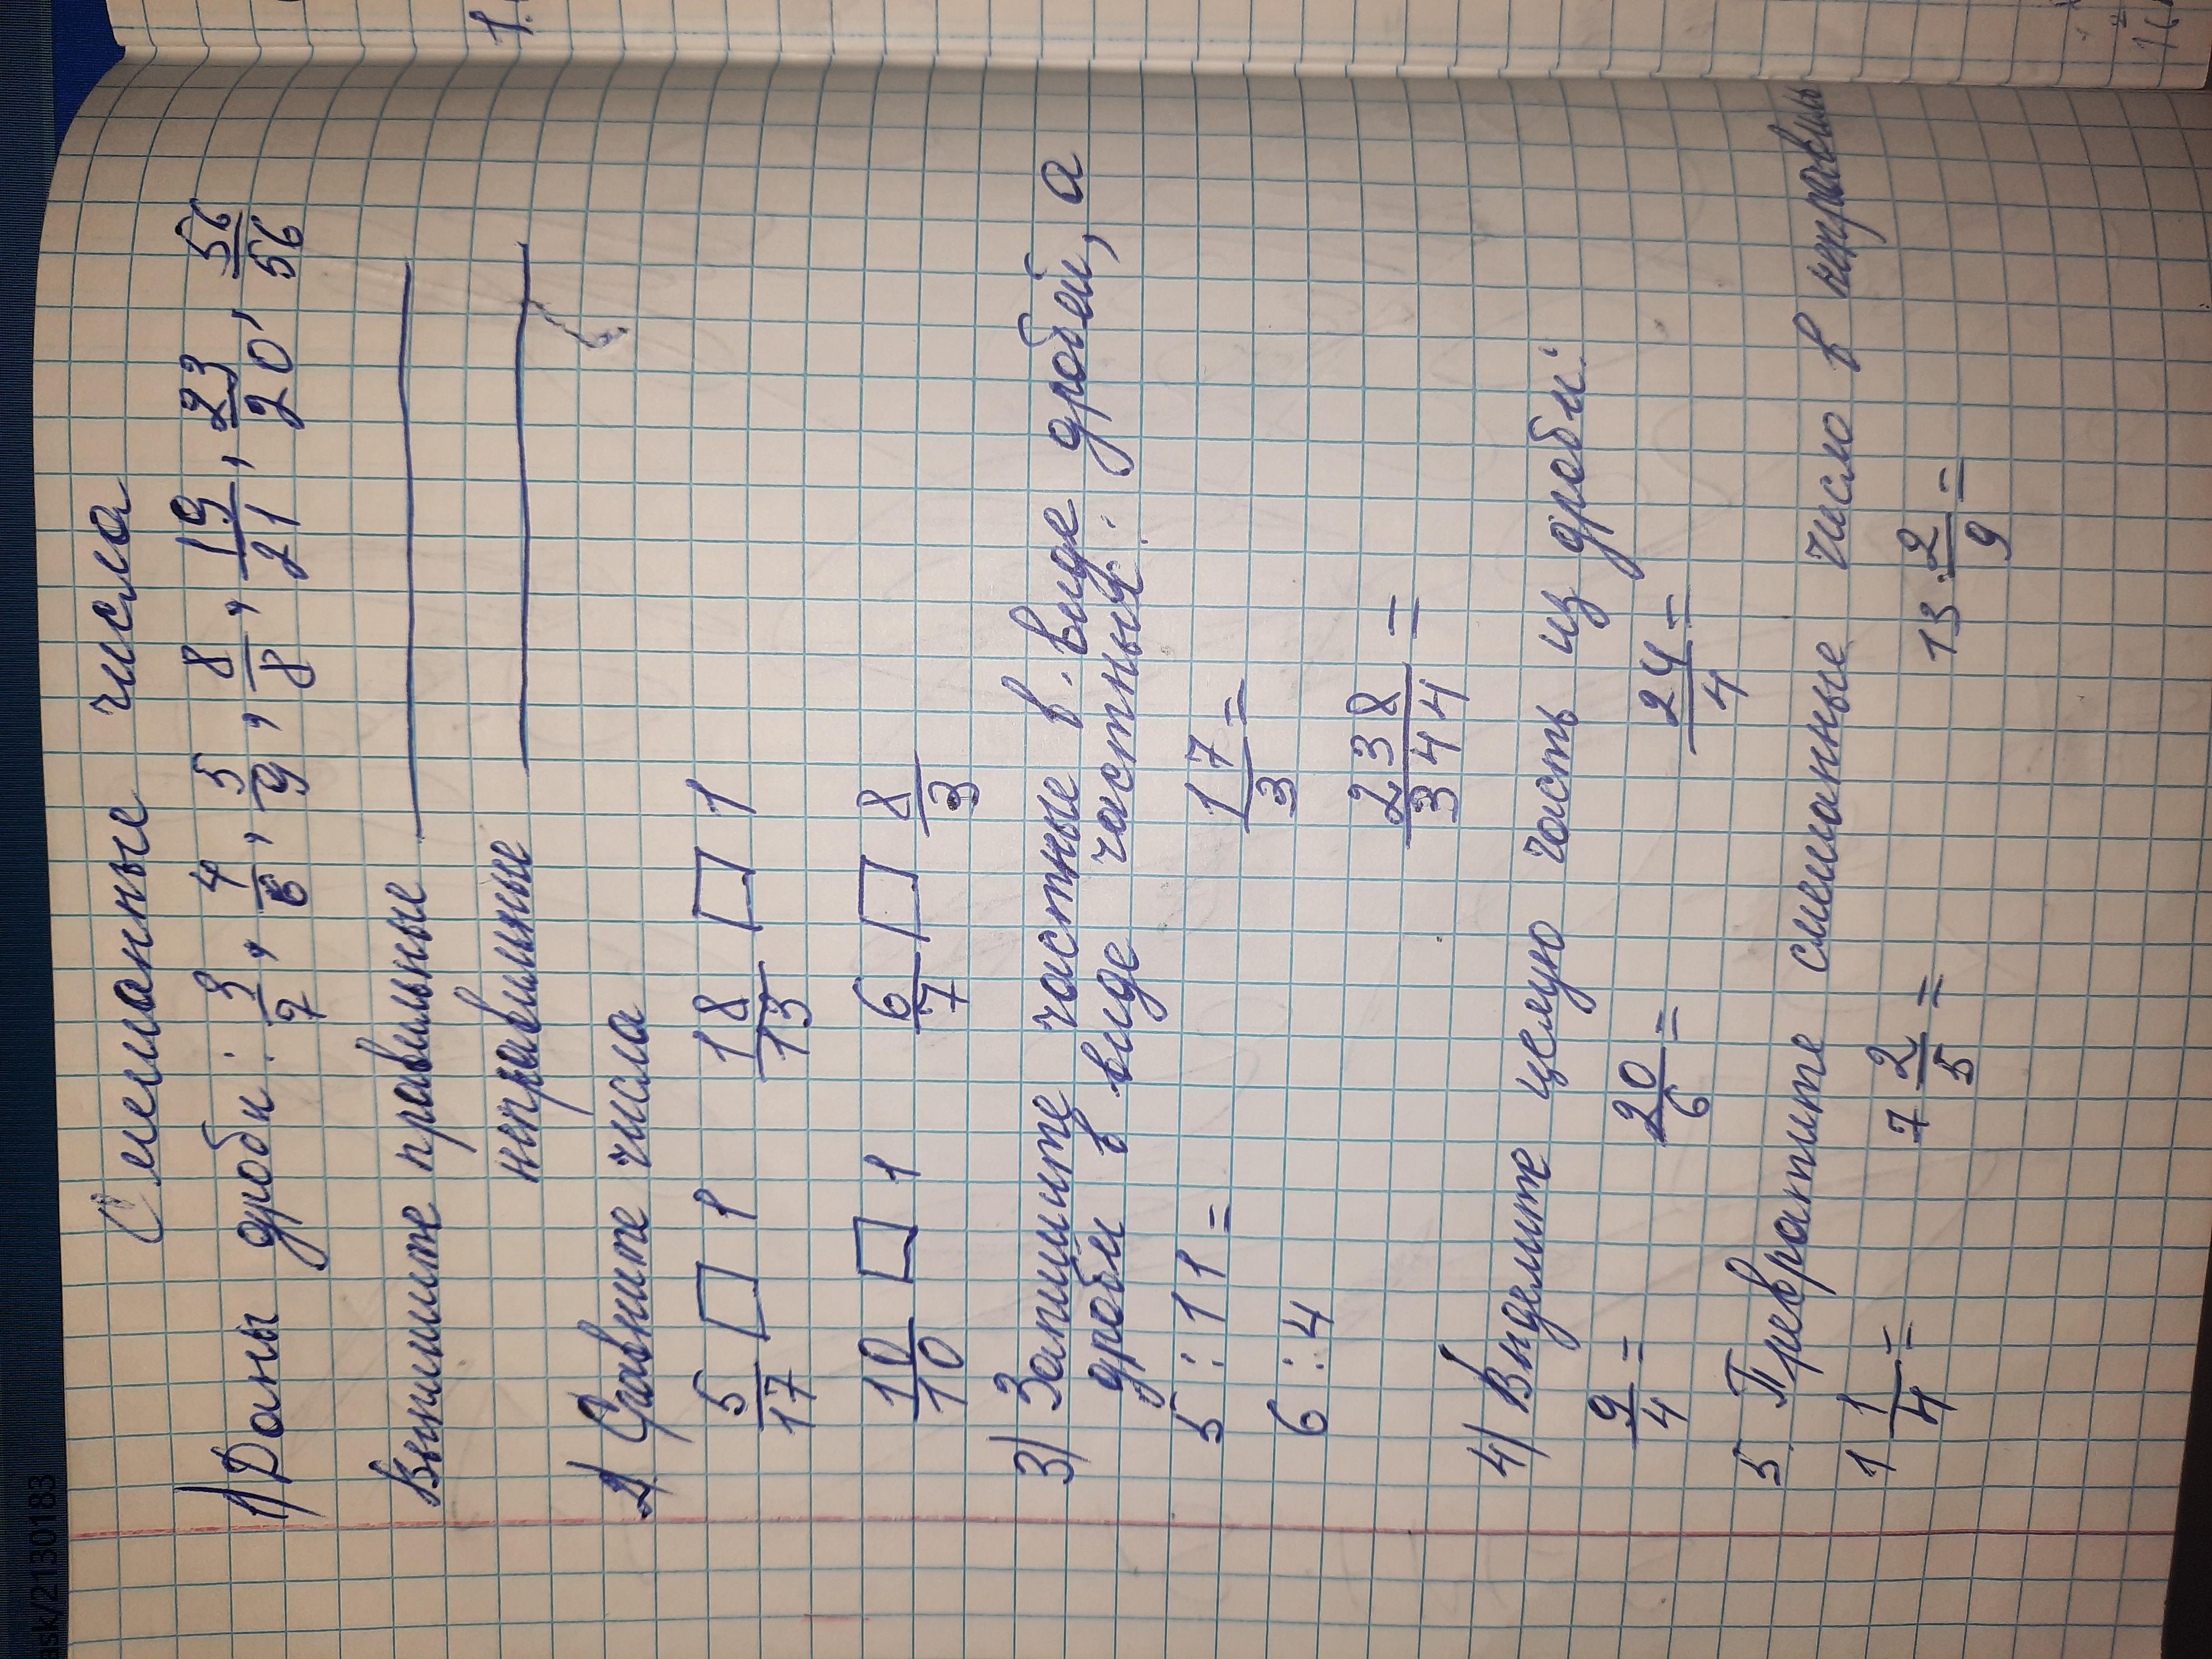 Смешанные числа
1) Даны дроби: 3/7, 4/, 5/9, 8/8, 19/21, 23/20, 56/56
Выпишите правильные
неправильные
2) Сравните числа
5/17 □ 1 18/13 □ 1
10/10 □ 1 6/7 □ 8/3
3) Запишите частные в виде дробей, а
дроби в виде частных:
5 : 11 = 17/3 =
6 : 4 238/344 =
4) Выделите целую часть из дроби:
9/4 = 20/6 = 24/4 =
5. Превратите смешанные число в неправильн
1 1/4 = 7 2/5 = 13 2/9 =
ask/2130183
1.